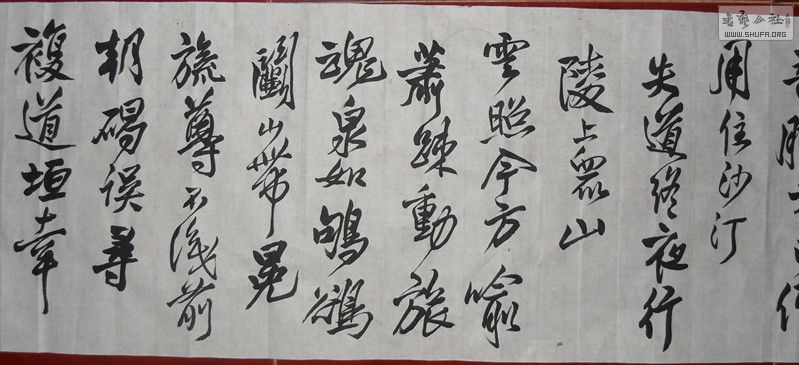 用住沙汀
失道終夜行
陵上眾山
雲照今方喻
蕭踈動旅
魂泉如
關山帶晃
旒尊不淺前
朝碣误尋
複道垣幸
書藝公社
WWW.SHUFA.ORG